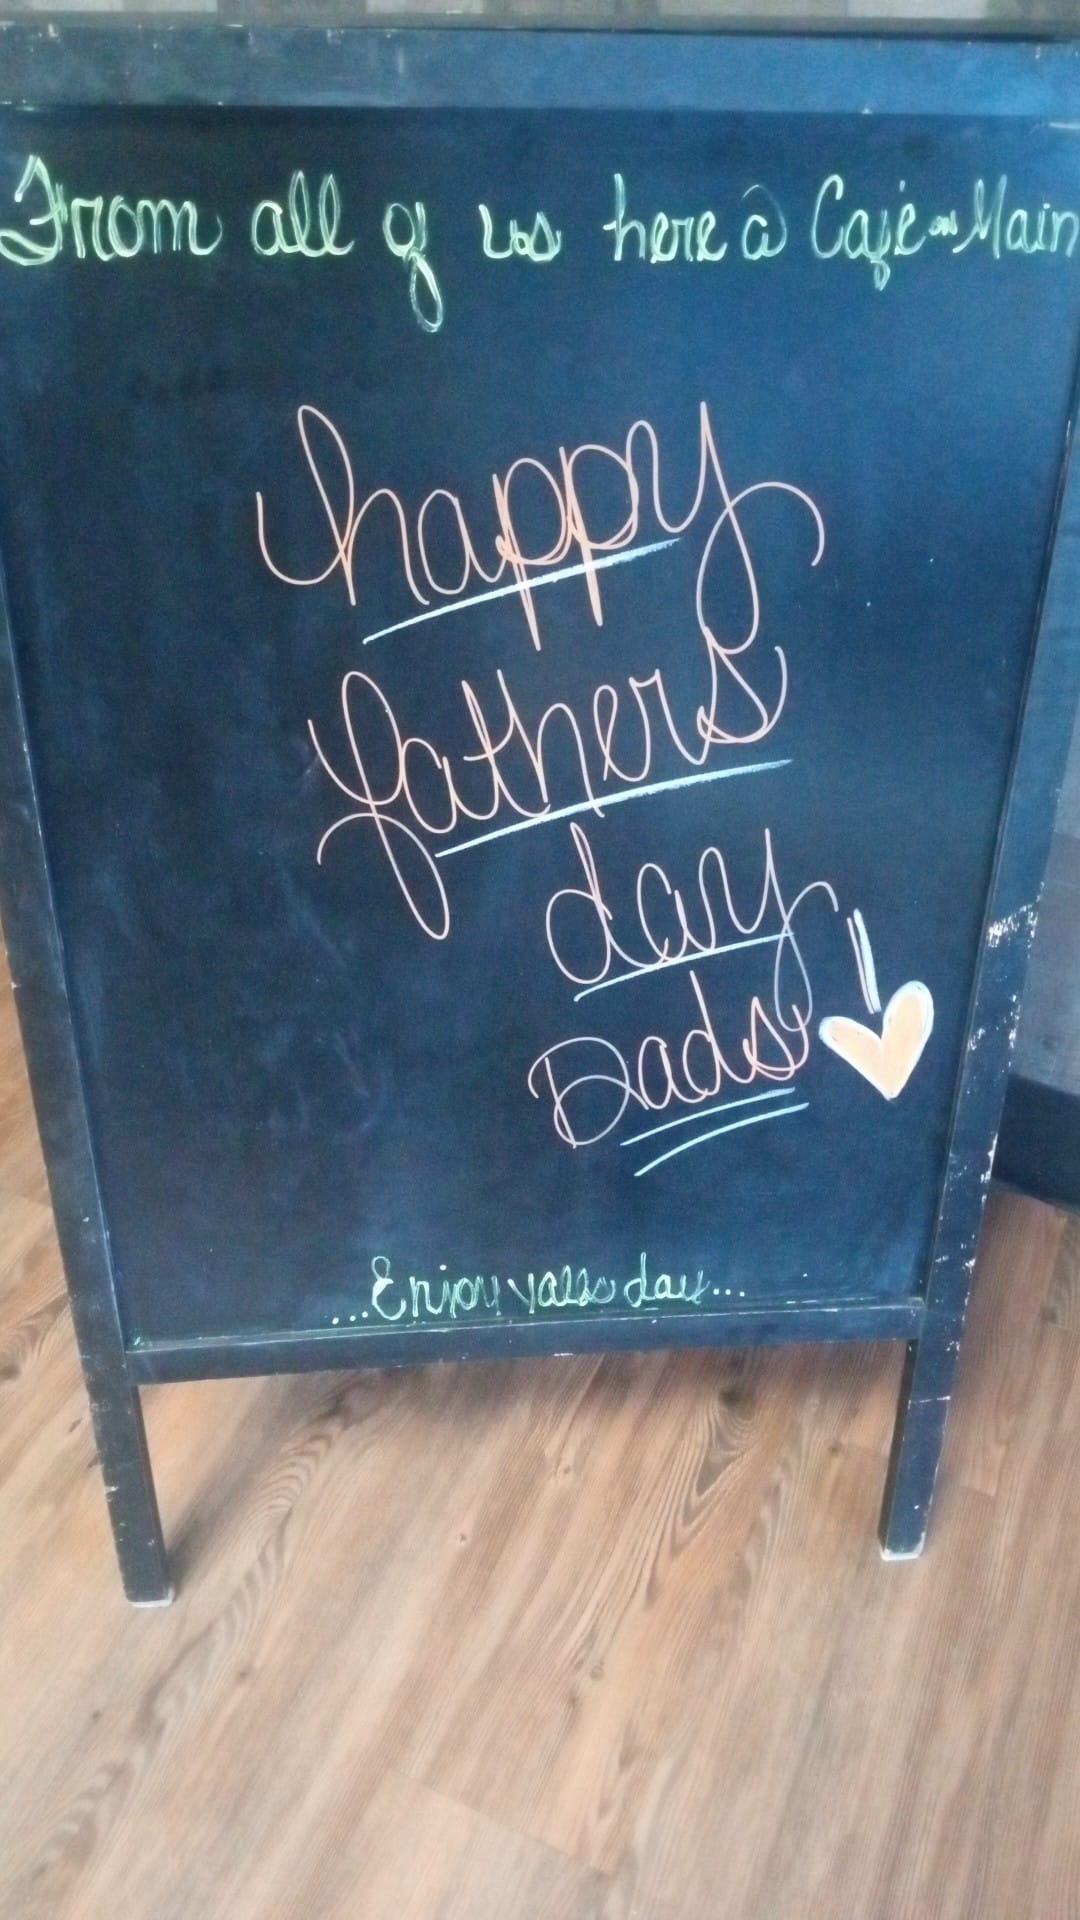 From all of us here @ Café on Main
happy
fathers
day
Dads
...Enjoy yalls day...